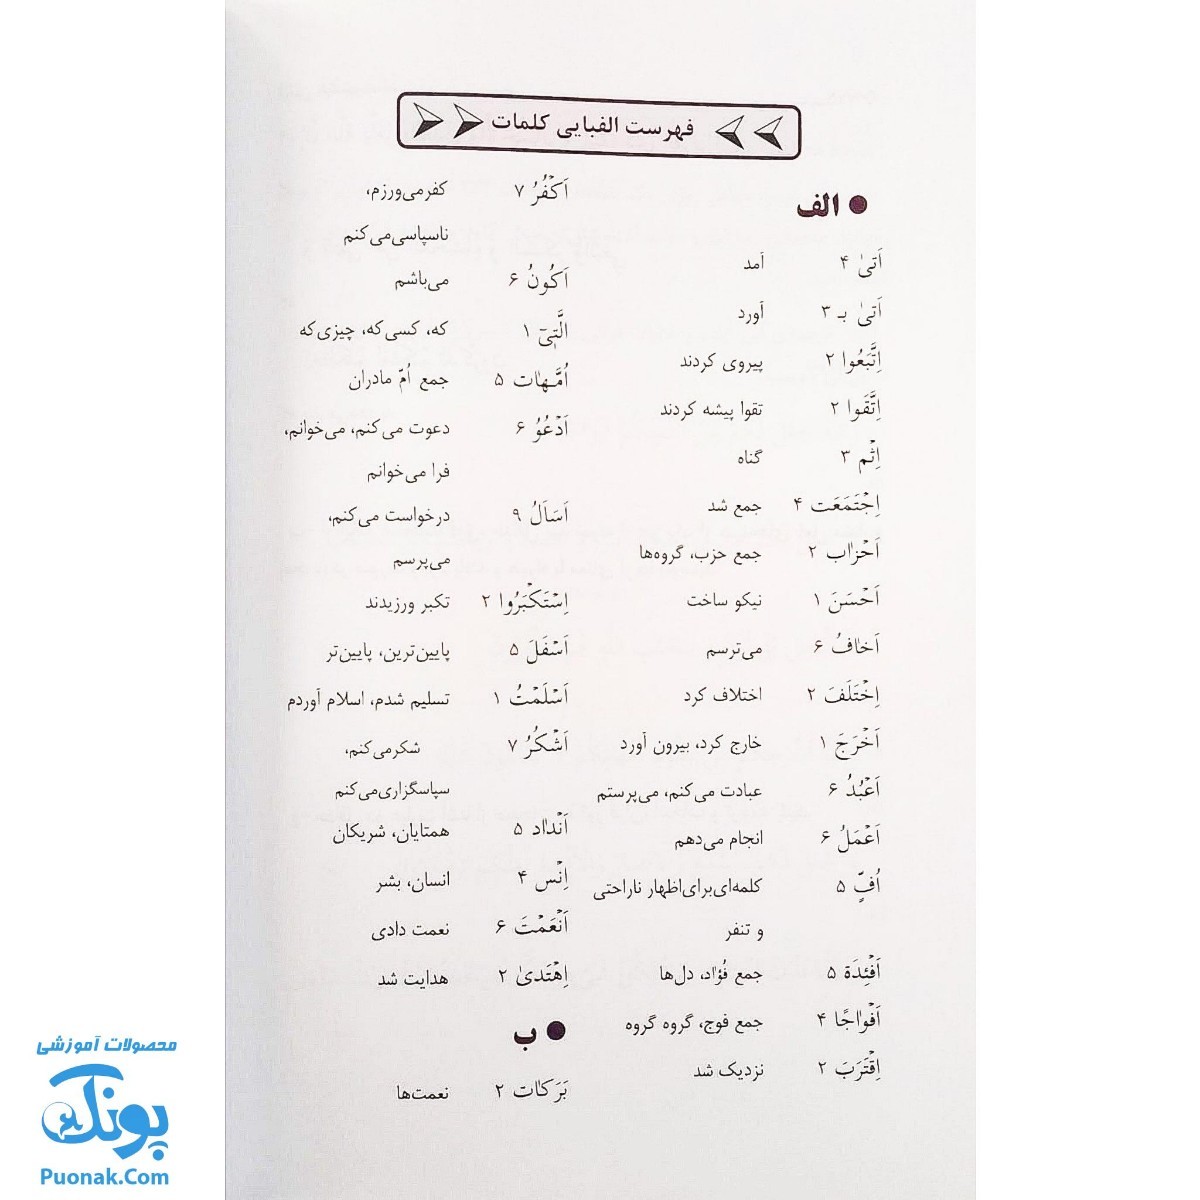 فهرست الفبایی کلمات
● الف
اَتیٰ ۴ آمد
اَتیٰ بـ ۳ آورد
اِتَّبَعُوا ۲ پیروی کردند
اِتَّقَوا ۲ تقوا پیشه کردند
اِثْم ۳ گناه
اِجْتَمَعَت ۴ جمع شد
اَحْزاب ۲ جمع حزب، گروه‌ها
اَحْسَنَ ۱ نیکو ساخت
اَخافُ ۶ می‌ترسم
اِخْتَلَفَ ۲ اختلاف کرد
اَخْرَجَ ۱ خارج کرد، بیرون آورد
اَعْبُدُ ۶ عبادت می‌کنم، می‌پرستم
اَعْمَلُ ۶ انجام می‌دهم
اُفٍّ ۵ کلمه‌ای برای اظهار ناراحتی
و تنفر
اَفْئِدَة ۵ جمع فُؤاد، دل‌ها
اَفْواجًا ۴ جمع فوج، گروه گروه
اِقْتَرَبَ ۲ نزدیک شد
اَکْفُرُ ۷ کفر می‌ورزم،
ناسپاسی می‌کنم
اَکُونُ ۶ می‌باشم
الَّتِیٓ ۱ که، کسی که، چیزی که
اُمَّهات ۵ جمع اُمّ مادران
اَدْعُوُ ۶ دعوت می‌کنم، می‌خوانم،
فرا می‌خوانم
اَسْاَلُ ۹ درخواست می‌کنم،
می‌پرسم
اِسْتَکْبَرُوا ۲ تکبر ورزیدند
اَسْفَلَ ۵ پایین‌ترین، پایین‌تر
اَسْلَمْتُ ۱ تسلیم شدم، اسلام آوردم
اَشْکُرُ ۷ شکر می‌کنم،
سپاسگزاری می‌کنم
اَنْداد ۵ همتایان، شریکان
اِنْس ۴ انسان، بشر
اَنْعَمْتَ ۶ نعمت دادی
اِهْتَدیٰ ۲ هدایت شد
● ب
بَرَکات ۲ نعمت‌ها
محصولات آموزشی
پونک
Puonak.Com